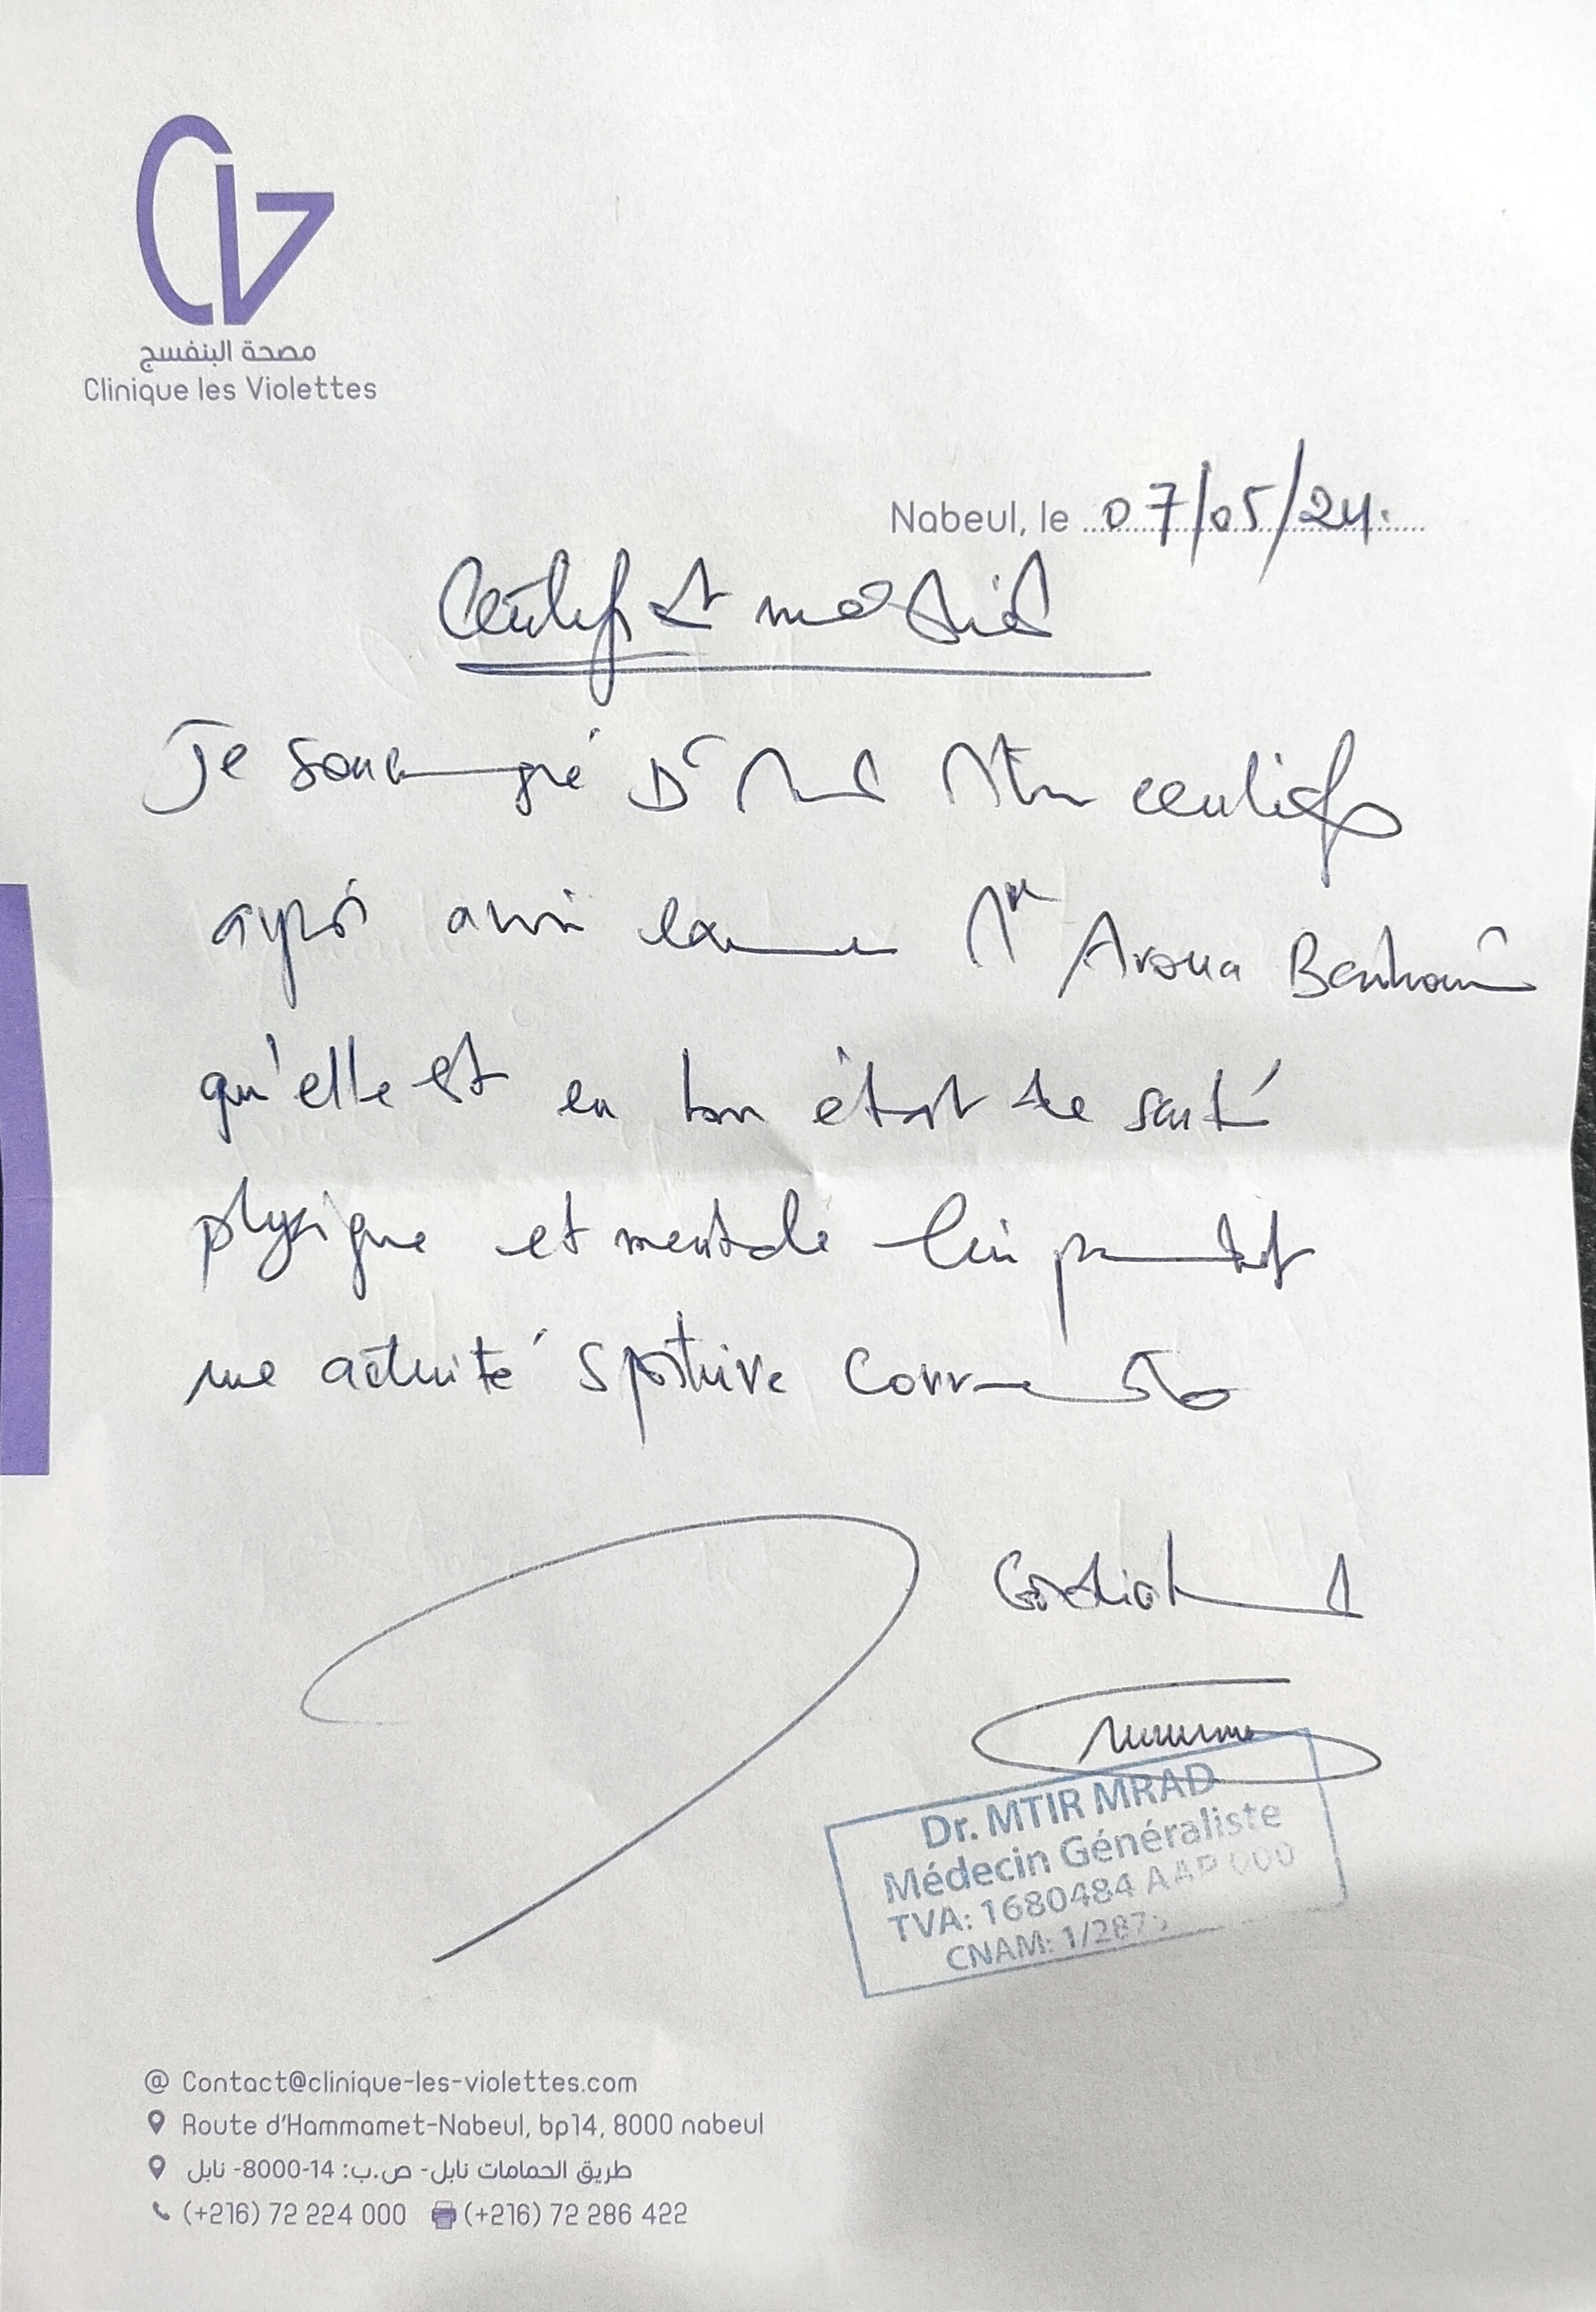 مصحة البنفسج
Clinique les Violettes
Nabeul, le 07/05/24.
Certificat médical
Je soussigné Dr Mrad Mtir certifie
après avoir examiné Mme Aroua
qu'elle est en bon état de santé
physique et mentale lui permettant
une activité sportive
Cordialement
Dr. MTIR MRAD
Médecin Généraliste
TVA: 1680484 AAP 000
CNAM: 1/287
@ Contact@clinique-les-violettes.com
Route d'Hammamet-Nabeul, bp14, 8000 nabeul
طريق الحمامات نابل- ص.ب: 14-8000- نابل
(+216) 72 224 000 (+216) 72 286 422